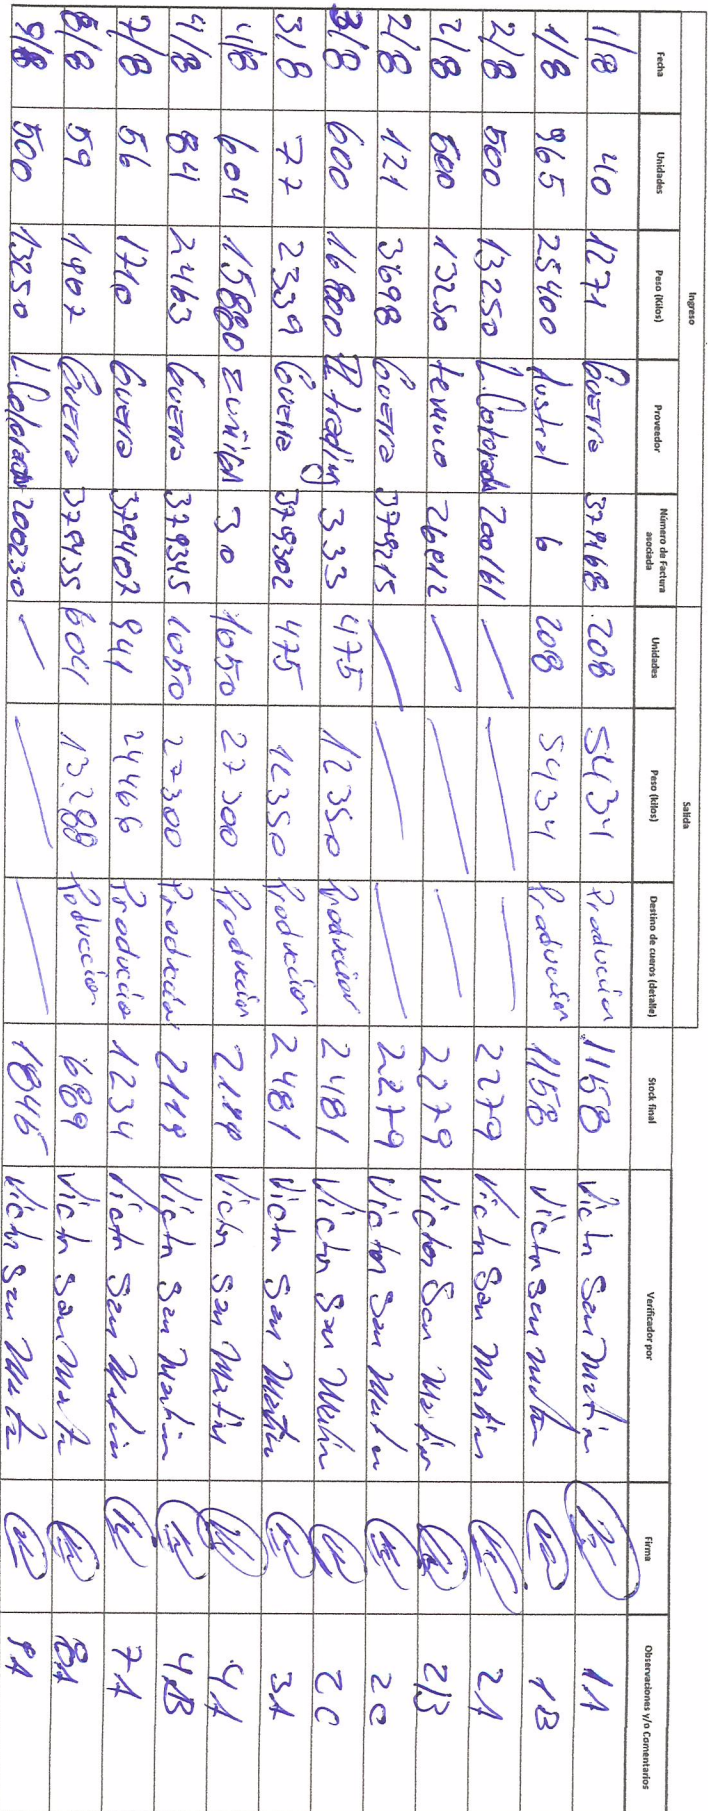 Ingreso Salida
Fecha Unidades Peso (Kilos) Proveedor Número de Factura asociada Unidades Peso (kilos) Destino de cueros (detalle) Stock final Verificador por Firma Observaciones y/o Comentarios
1/8 40 1271 Guerra 379168 208 5434 Producción 1158 Victor San Martin 1A
1/8 965 25400 Austral 6 208 5434 Producción 1158 Victor San Martin 1B
2/8 500 13250 L. Colorado 200161 — — — 2279 Victor San Martin 2A
2/8 500 13250 temuco 26812 — — — 2279 Victor San Martin 2B
2/8 121 3698 Guerra 379215 — — — 2279 Victor San Martin 2C
3/8 600 16800 trading 333 475 12350 Producción 2481 Victor San Martin 2C
3/8 77 2339 Guerra 379302 475 12350 Producción 2481 Victor San Martin 3A
4/8 604 15880 zuñiga 30 1050 27300 Producción 2119 Victor San Martin 4A
4/8 84 2463 Guerra 379345 1050 27300 Producción 2119 Victor San Martin 4B
7/8 56 1710 Guerra 379407 941 24466 Producción 1234 Victor San Martin 7A
8/8 59 1907 Guerra 379435 604 13288 Producción 689 Victor San Martin 8A
9/8 500 13250 L. Colorado 200230 — — — 1846 Victor San Martin 9A